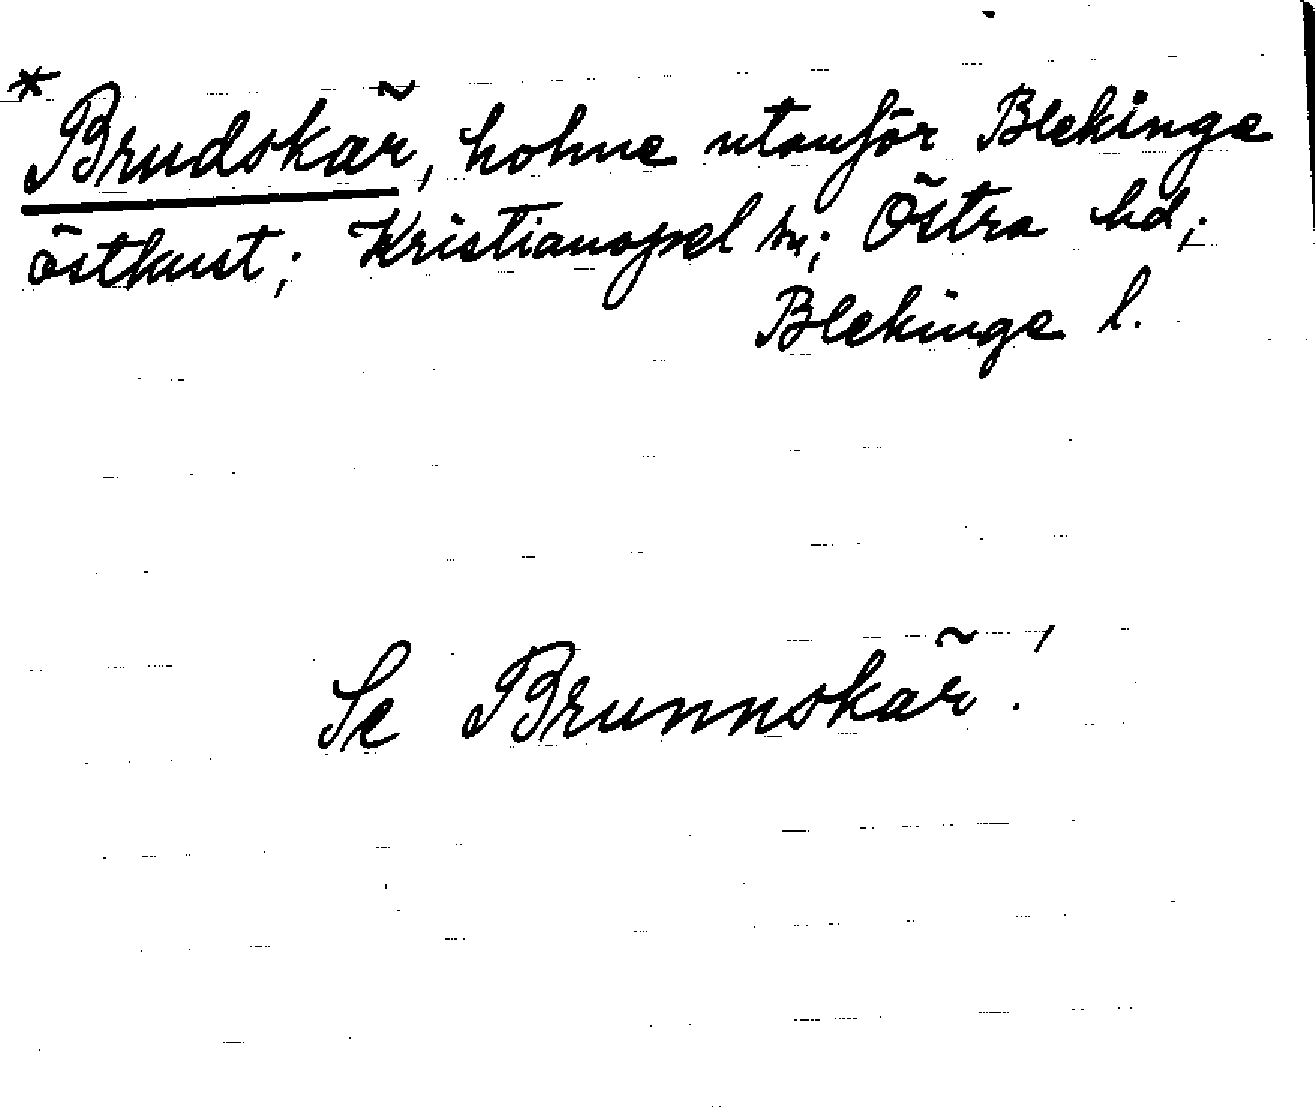 *Brudskär, holme utanför Blekinge
östkust; Kristianopel sn; Östra hd;
Blekinge l.
Se Brunnskär!